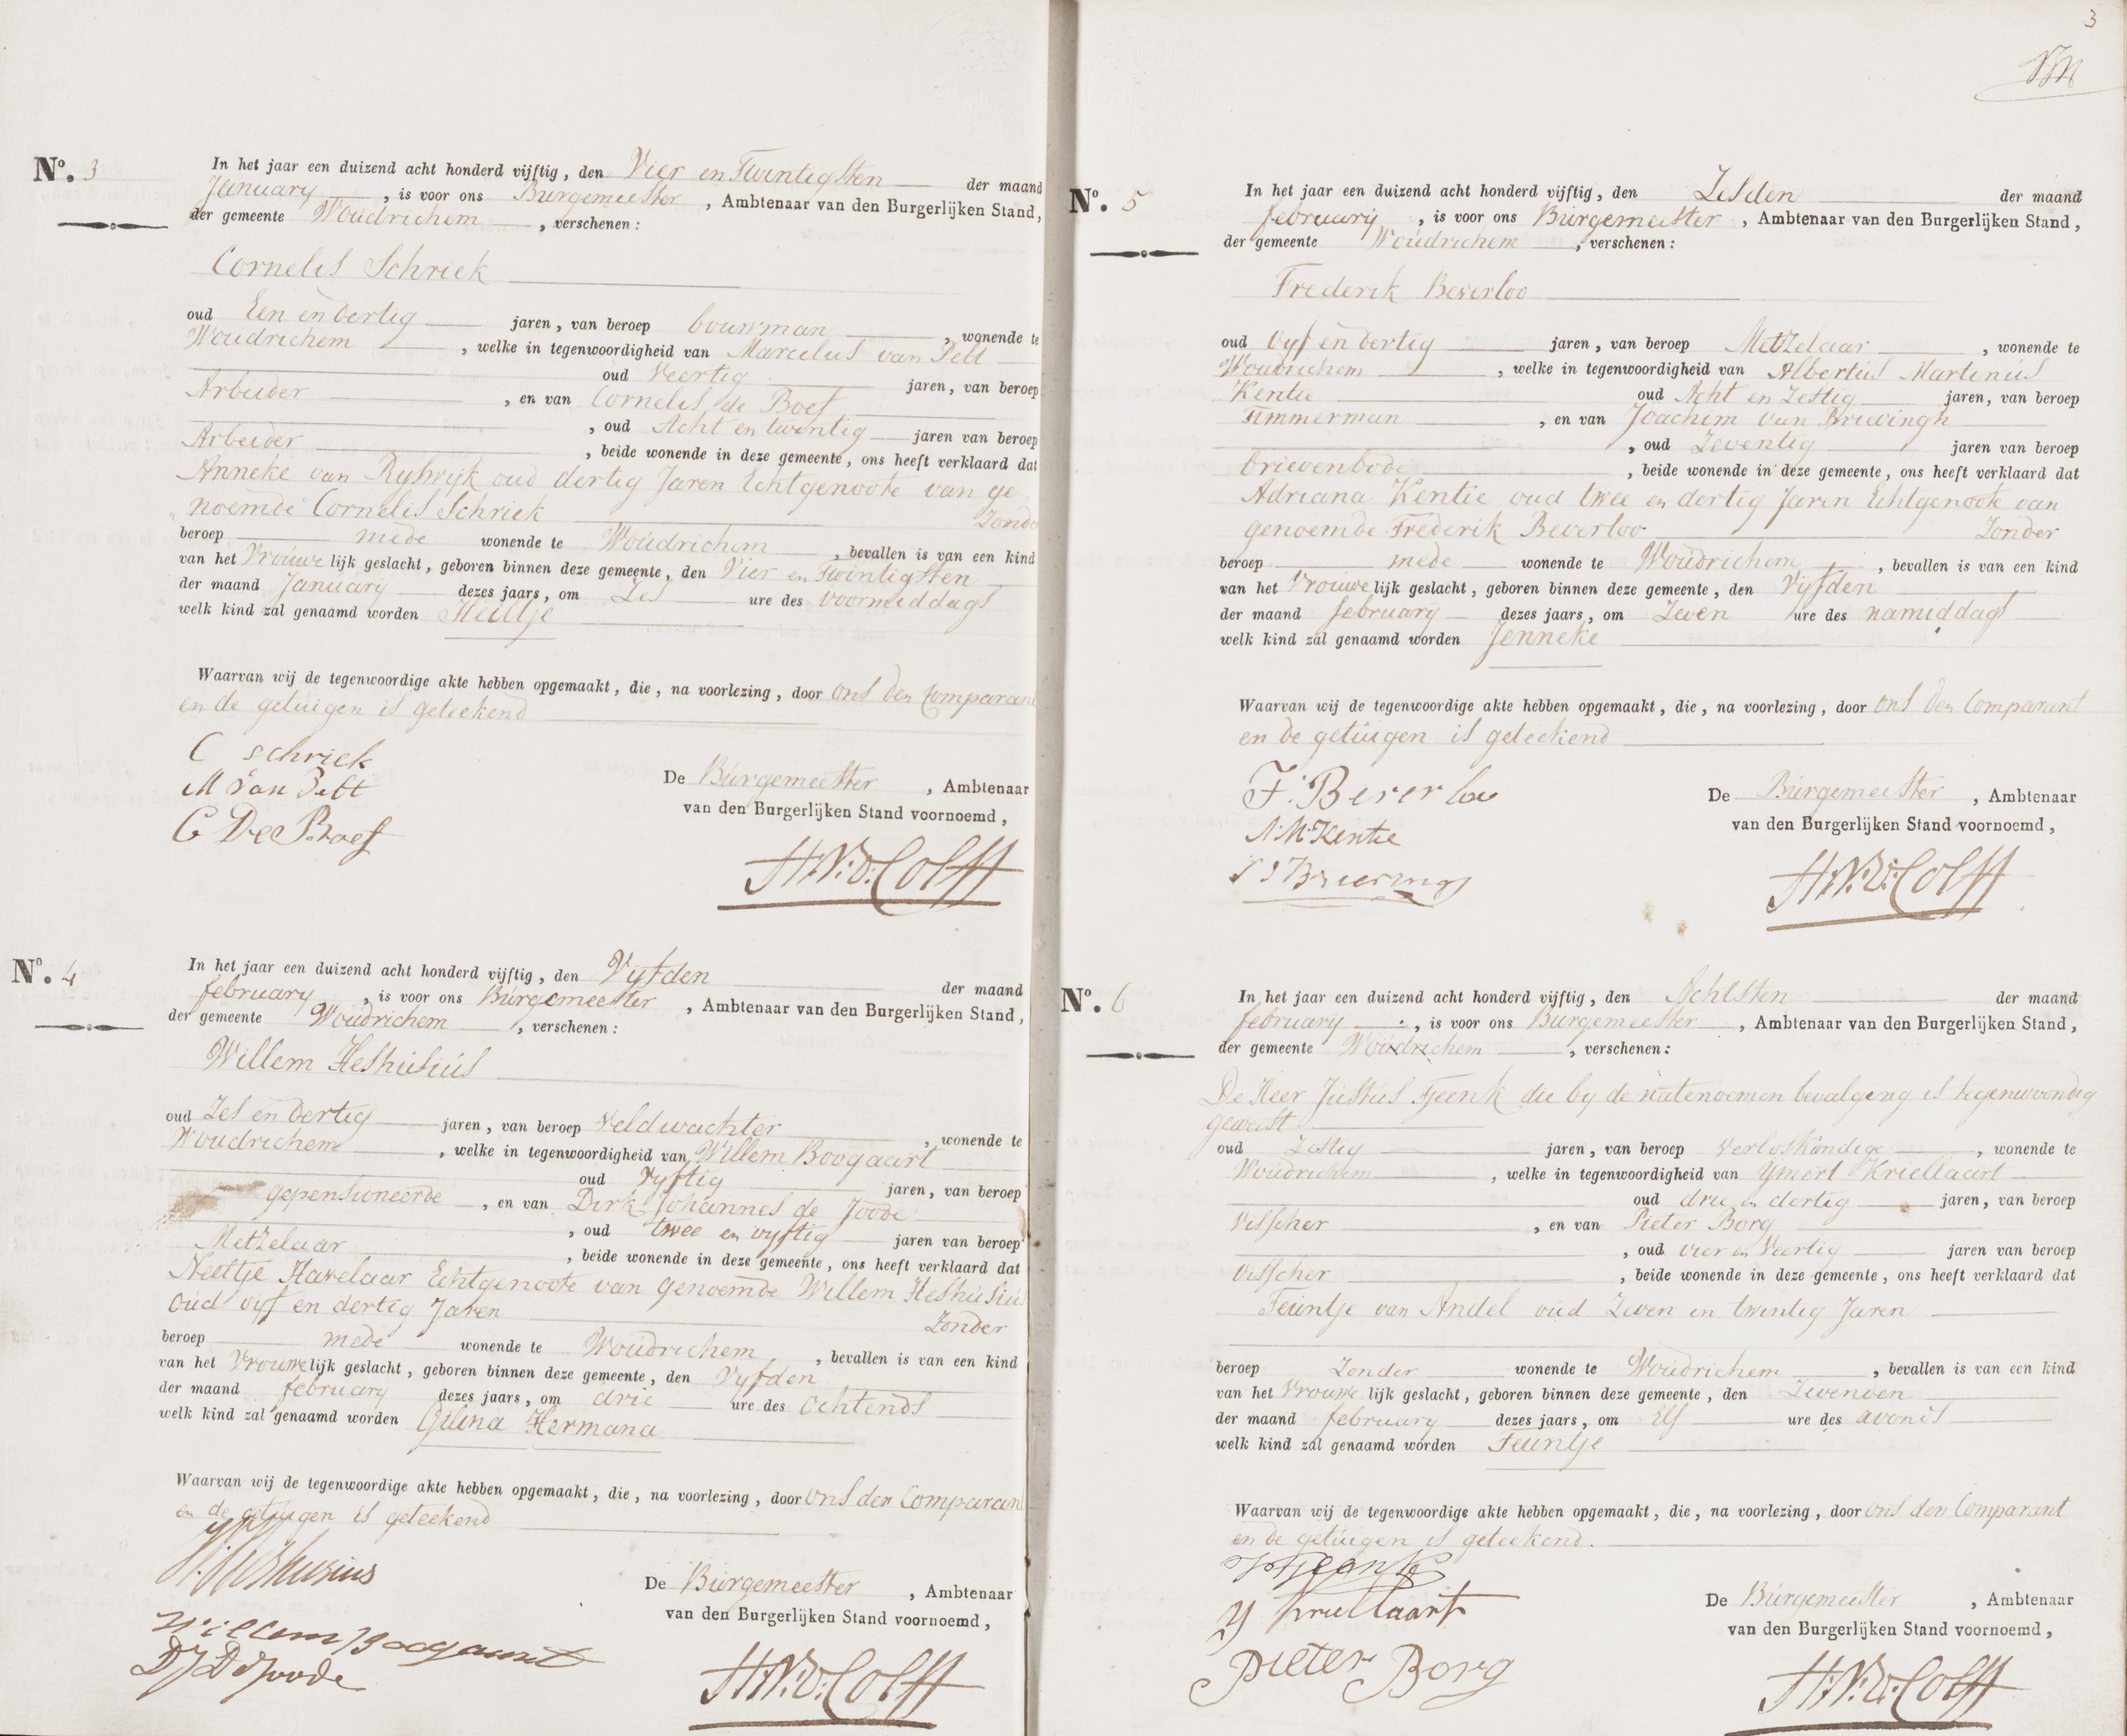 Nº. 3
In het jaar een duizend acht honderd vijftig, den Vier en Twintigsten der maand
January, is voor ons Burgemeester, Ambtenaar van den Burgerlijken Stand,
der gemeente Woudrichem, verschenen:
Cornelis Schriek
oud Een en dertig jaren, van beroep bouwman, wonende te
Woudrichem, welke in tegenwoordigheid van Marcelus van Pelt
oud Veertig jaren, van beroep
Arbeider, en van Cornelis de Boef
, oud Acht en twentig jaren van beroep
Arbeider, beide wonende in deze gemeente, ons heeft verklaard dat
Anneke van Ryswyk oud dertig Jaren Echtgenoote van ge
noemde Cornelis Schriek Zonder
beroep mede wonende te Woudrichem, bevallen is van een kind
van het Vrouwelijk geslacht, geboren binnen deze gemeente, den Vier en Twintigsten
der maand January dezes jaars, om Zes ure des voormiddags
welk kind zal genaamd worden Heiltje
Waarvan wij de tegenwoordige akte hebben opgemaakt, die, na voorlezing, door ons den Comparant
en de getuigen is geteekend
C schriek
M van Pelt
C De Boef
De Burgemeester, Ambtenaar
van den Burgerlijken Stand voornoemd,
Nº. 4
In het jaar een duizend acht honderd vijftig, den Vyfden der maand
february, is voor ons Burgemeester, Ambtenaar van den Burgerlijken Stand,
der gemeente Woudrichem, verschenen:
Willem Heshusius
oud Zes en dertig jaren, van beroep veldwachter, wonende te
Woudrichem, welke in tegenwoordigheid van Willem Boogaart
oud Vyftig jaren, van beroep
gepensioneerde, en van Dirk Johannes de Joode
, oud twee en vyftig jaren van beroep
Metzelaar, beide wonende in deze gemeente, ons heeft verklaard dat
Neeltje Havelaar Echtgenoote van genoemde Willem Heshusius
oud vyf en dertig Jaren Zonder
beroep mede wonende te Woudrichem, bevallen is van een kind
van het Vrouwelijk geslacht, geboren binnen deze gemeente, den Vyfden
der maand february dezes jaars, om drie ure des ochtends
welk kind zal genaamd worden Hermana
Waarvan wij de tegenwoordige akte hebben opgemaakt, die, na voorlezing, door ons den Comparant
en de getuigen is geteekend
Heshusius
Willem Boogaart
DJ D Joode
De Burgemeester, Ambtenaar
van den Burgerlijken Stand voornoemd,
3
Nº. 5
In het jaar een duizend acht honderd vijftig, den Zesden der maand
february, is voor ons Burgemeester, Ambtenaar van den Burgerlijken Stand,
der gemeente Woudrichem, verschenen:
Frederik Beverloo
oud vyf en dertig jaren, van beroep Metzelaar, wonende te
Woudrichem, welke in tegenwoordigheid van Albertus Martinus
Kentie oud Acht en Zestig jaren, van beroep
timmerman, en van Joachim van
, oud Zeventig jaren van beroep
brievenbode, beide wonende in deze gemeente, ons heeft verklaard dat
Adriana Kentie oud twee en dertig Jaren Echtgenoote van
genoemde Frederik Beverloo Zonder
beroep mede wonende te Woudrichem, bevallen is van een kind
van het Vrouwelijk geslacht, geboren binnen deze gemeente, den Vyfden
der maand february dezes jaars, om Zeven ure des namiddags
welk kind zal genaamd worden Jenneke
Waarvan wij de tegenwoordige akte hebben opgemaakt, die, na voorlezing, door ons den Comparant
en de getuigen is geteekend
F. Beverloo
A. M. Kentie
De Burgemeester, Ambtenaar
van den Burgerlijken Stand voornoemd,
Nº. 6
In het jaar een duizend acht honderd vijftig, den Achtsten der maand
february, is voor ons Burgemeester, Ambtenaar van den Burgerlijken Stand,
der gemeente Woudrichem, verschenen:
De Heer Justus Tjeenk die by de natenoemen bevalging is tegenwoordig
geweest
oud Zestig jaren, van beroep verloskundige, wonende te
Woudrichem, welke in tegenwoordigheid van Ymert Kriellaart
oud drie en dertig jaren, van beroep
visscher, en van Pieter Borg
, oud vier en Veertig jaren van beroep
visscher, beide wonende in deze gemeente, ons heeft verklaard dat
Teuntje van Andel oud Zeven en twintig Jaren
beroep Zonder wonende te Woudrichem, bevallen is van een kind
van het Vrouwelijk geslacht, geboren binnen deze gemeente, den Zevenden
der maand february dezes jaars, om Elf ure des avonds
welk kind zal genaamd worden Teuntje
Waarvan wij de tegenwoordige akte hebben opgemaakt, die, na voorlezing, door ons den Comparant
en de getuigen is geteekend.
Tjeenk
Y kriellaart
Pieter Borg
De Burgemeester, Ambtenaar
van den Burgerlijken Stand voornoemd,